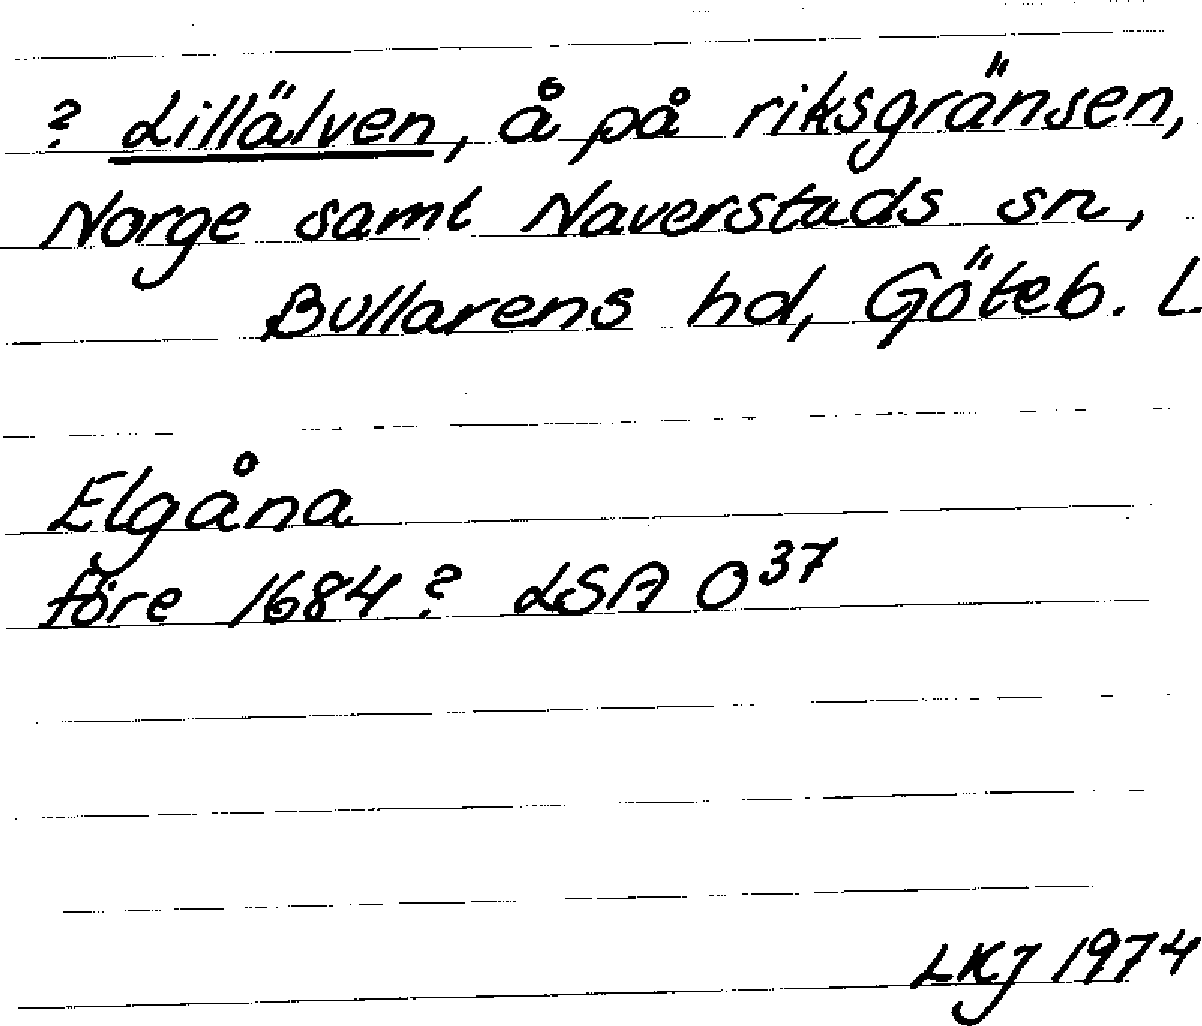 ? Lillälven, å på riksgränsen,
Norge samt Naverstads sn,
Bullarens hd, Göteb. L.
Elgåna
före 1684? LSA O³⁷
LKJ 1974